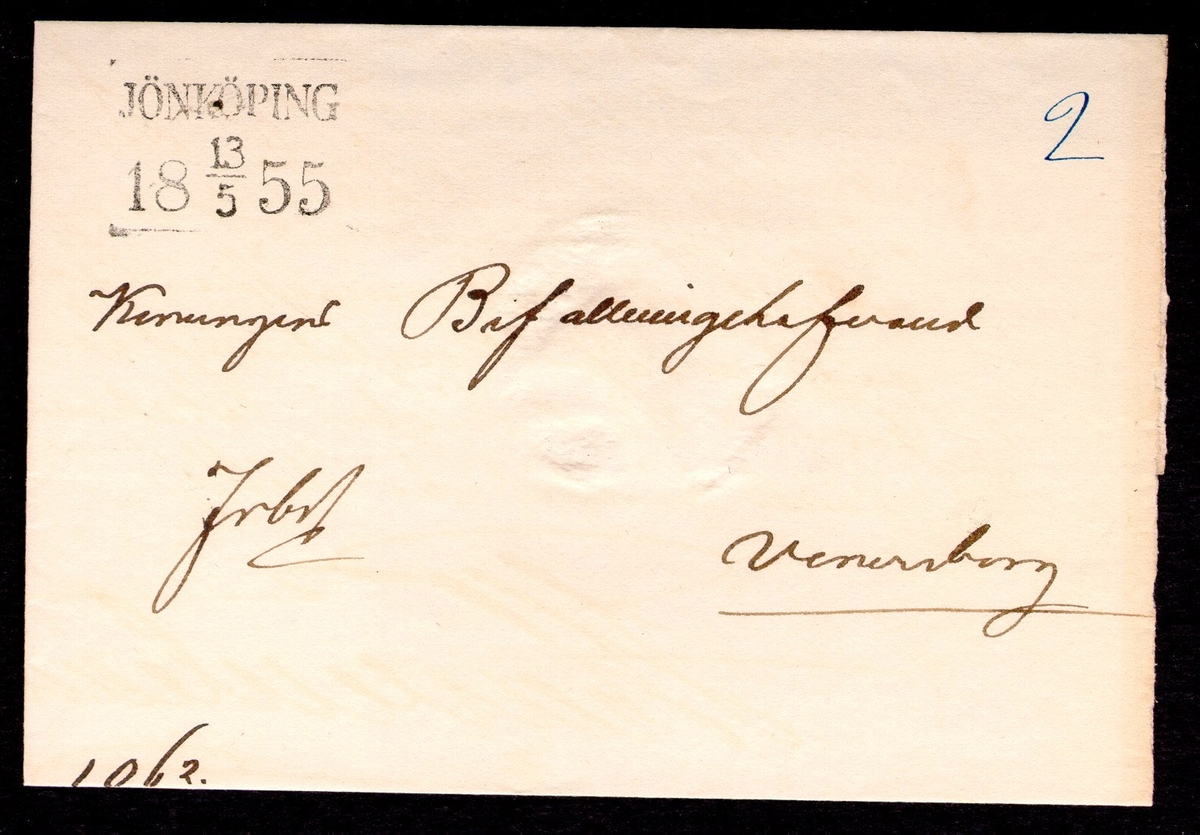 JÖNKÖPING
18 13/5 55
2
Konungens Befallningshafvand
Venersborg
1062.